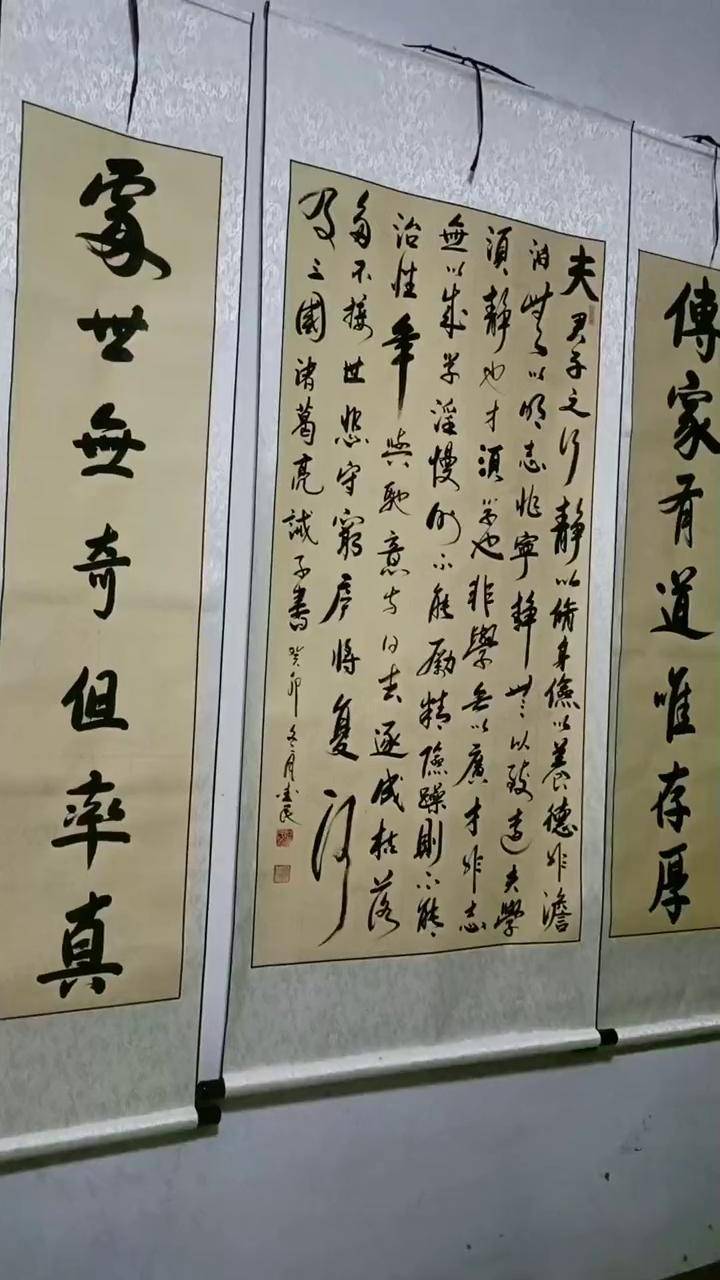 傳家有道唯存厚
夫君子之行靜以脩身儉以養德非澹
泊無以明志非寧靜無以致遠夫學
須靜也才須學也非學無以廣才非志
無以成學淫慢則不能勵精險躁則不能
治性年與馳意与日去遂成枯落
多不接世悲守窮廬將復何
及三國諸葛亮誡子書癸卯冬月
處世無奇但率真